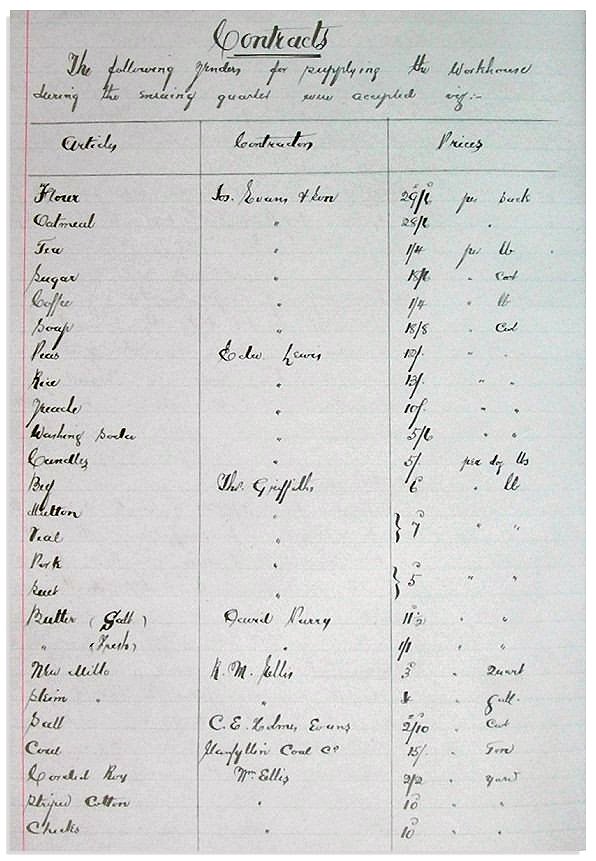 Contracts
The following Tenders for supplying the Workhouse
during the ensuing quarter were accepted viz:-
Articles Contractors Prices
Flour Jos. Evans & Son 29/6 per Sack
Oatmeal " 28/6 "
Tea " 1/4 per lb
Sugar " 18/6 " Cwt
Coffee " 1/4 " lb
Soap " 18/8 " Cwt
Peas Edw Lewis 12/. " "
Rice " 13/. " "
Treacle " 10/. " "
Washing Soda " 5/6 " "
Candles " 5/. per doz lbs
Beef Thos. Griffiths 6 " lb
Mutton "
Veal " } 7 " "
Pork "
Suet " } 5 " "
Butter (Salt) David Parry 11½ " "
" (Fresh) " 1/1 " "
New Milk R. M. Ellis 3 " Quart
Skim " " 4 " gall.
Salt C. E. Holmes Evans 2/10 " Cwt
Coal Llanfyllin Coal Co 15/. " Ton
Corded Roy Wm Ellis 2/2 " yard
Striped Cotton " 10 " "
Checks " 10 " "